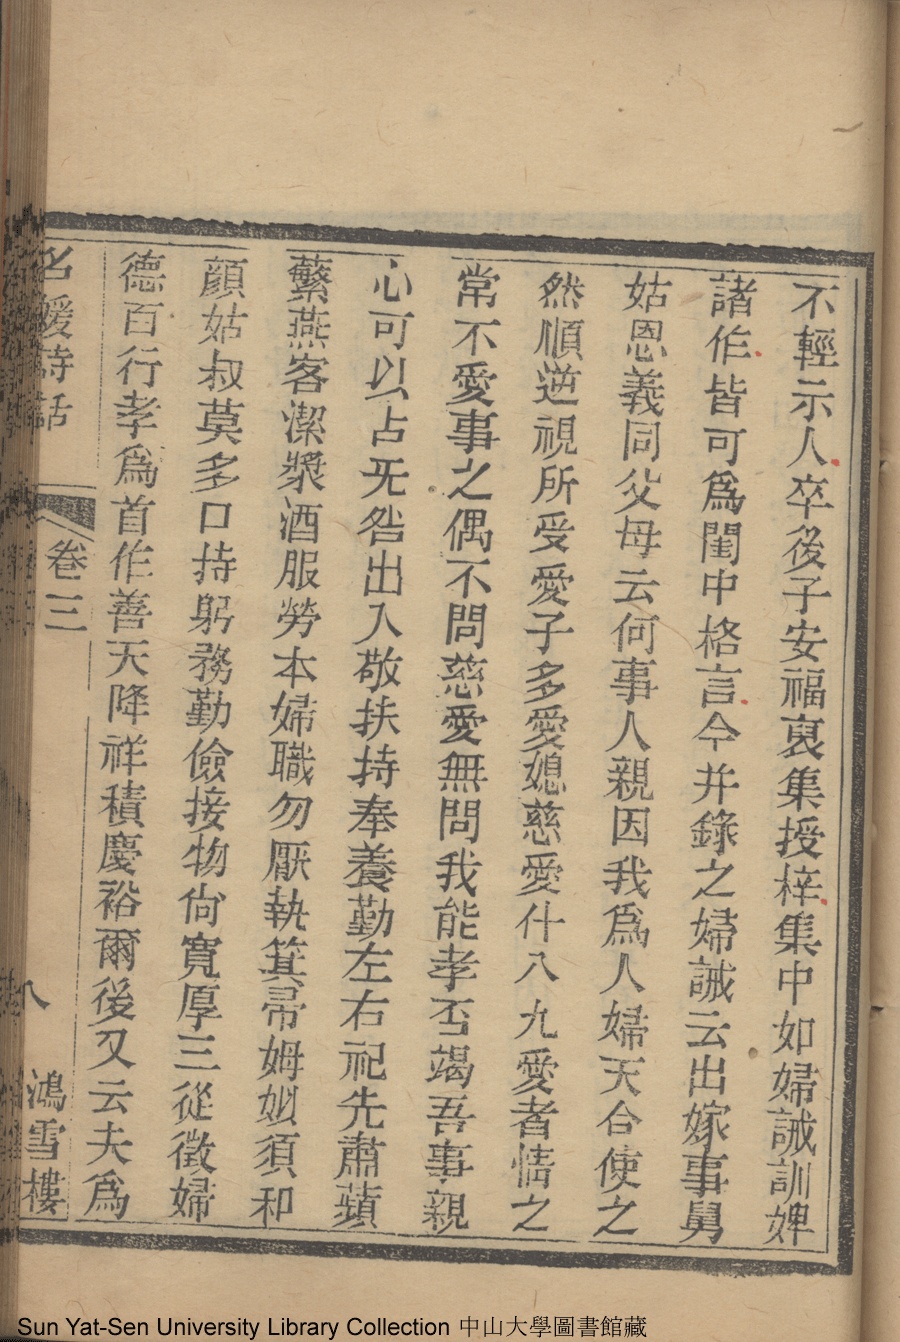 不輕示人卒後子安福裒集授梓集中如婦誡訓婢
諸作皆可爲閨中格言今并錄之婦誡云出嫁事舅
姑恩義同父母云何事人親因我爲人婦天合使之
然順逆視所受愛子多愛媳慈愛什八九愛者情之
常不愛事之偶不問慈愛無問我能孝否竭吾事親
心可以占旡咎出入敬扶持奉養勤左右祀先肅蘋
蘩燕客潔漿酒服勞本婦職勿厭執箕帚姆姒須和
顏姑叔莫多口持躬務勤儉接物尙寬厚三從徵婦
德百行孝爲首作善天降祥積慶裕爾後又云夫爲
名媛詩話 卷三 八 鴻雪樓
Sun Yat-Sen University Library Collection 中山大學圖書館藏